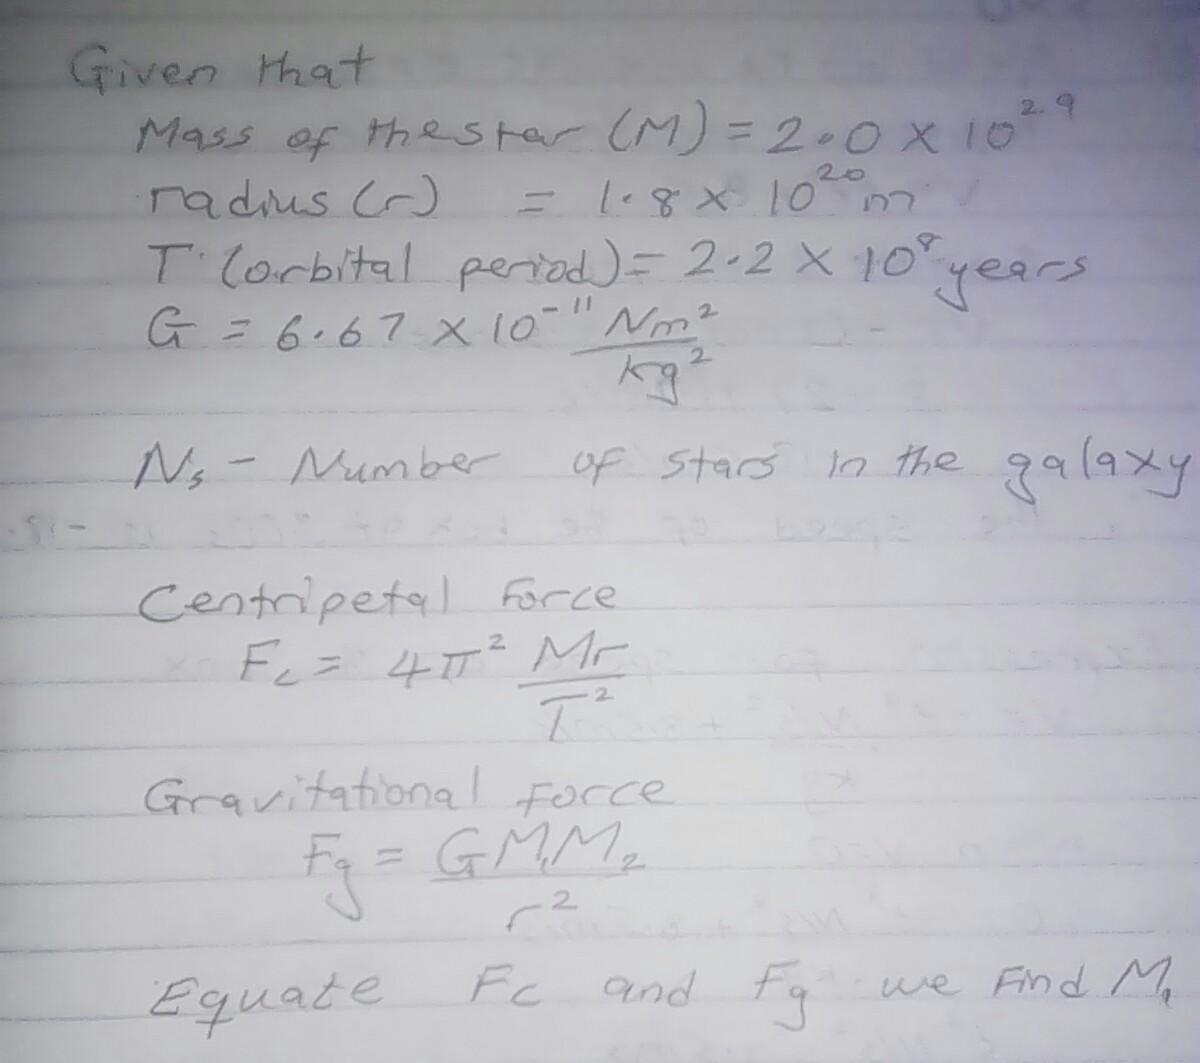 Given that
Mass of the star (M) = 2.0 x 10^29
radius (r) = 1.8 x 10^20 m
T (orbital period) = 2.2 x 10^8 years
G = 6.67 x 10^-11 Nm^2/kg^2
Ns - Number of stars in the galaxy
Centripetal Force
Fc = 4π^2 Mr/T^2
Gravitational Force
Fg = GM1M2/r^2
Equate Fc and Fg we Find M1